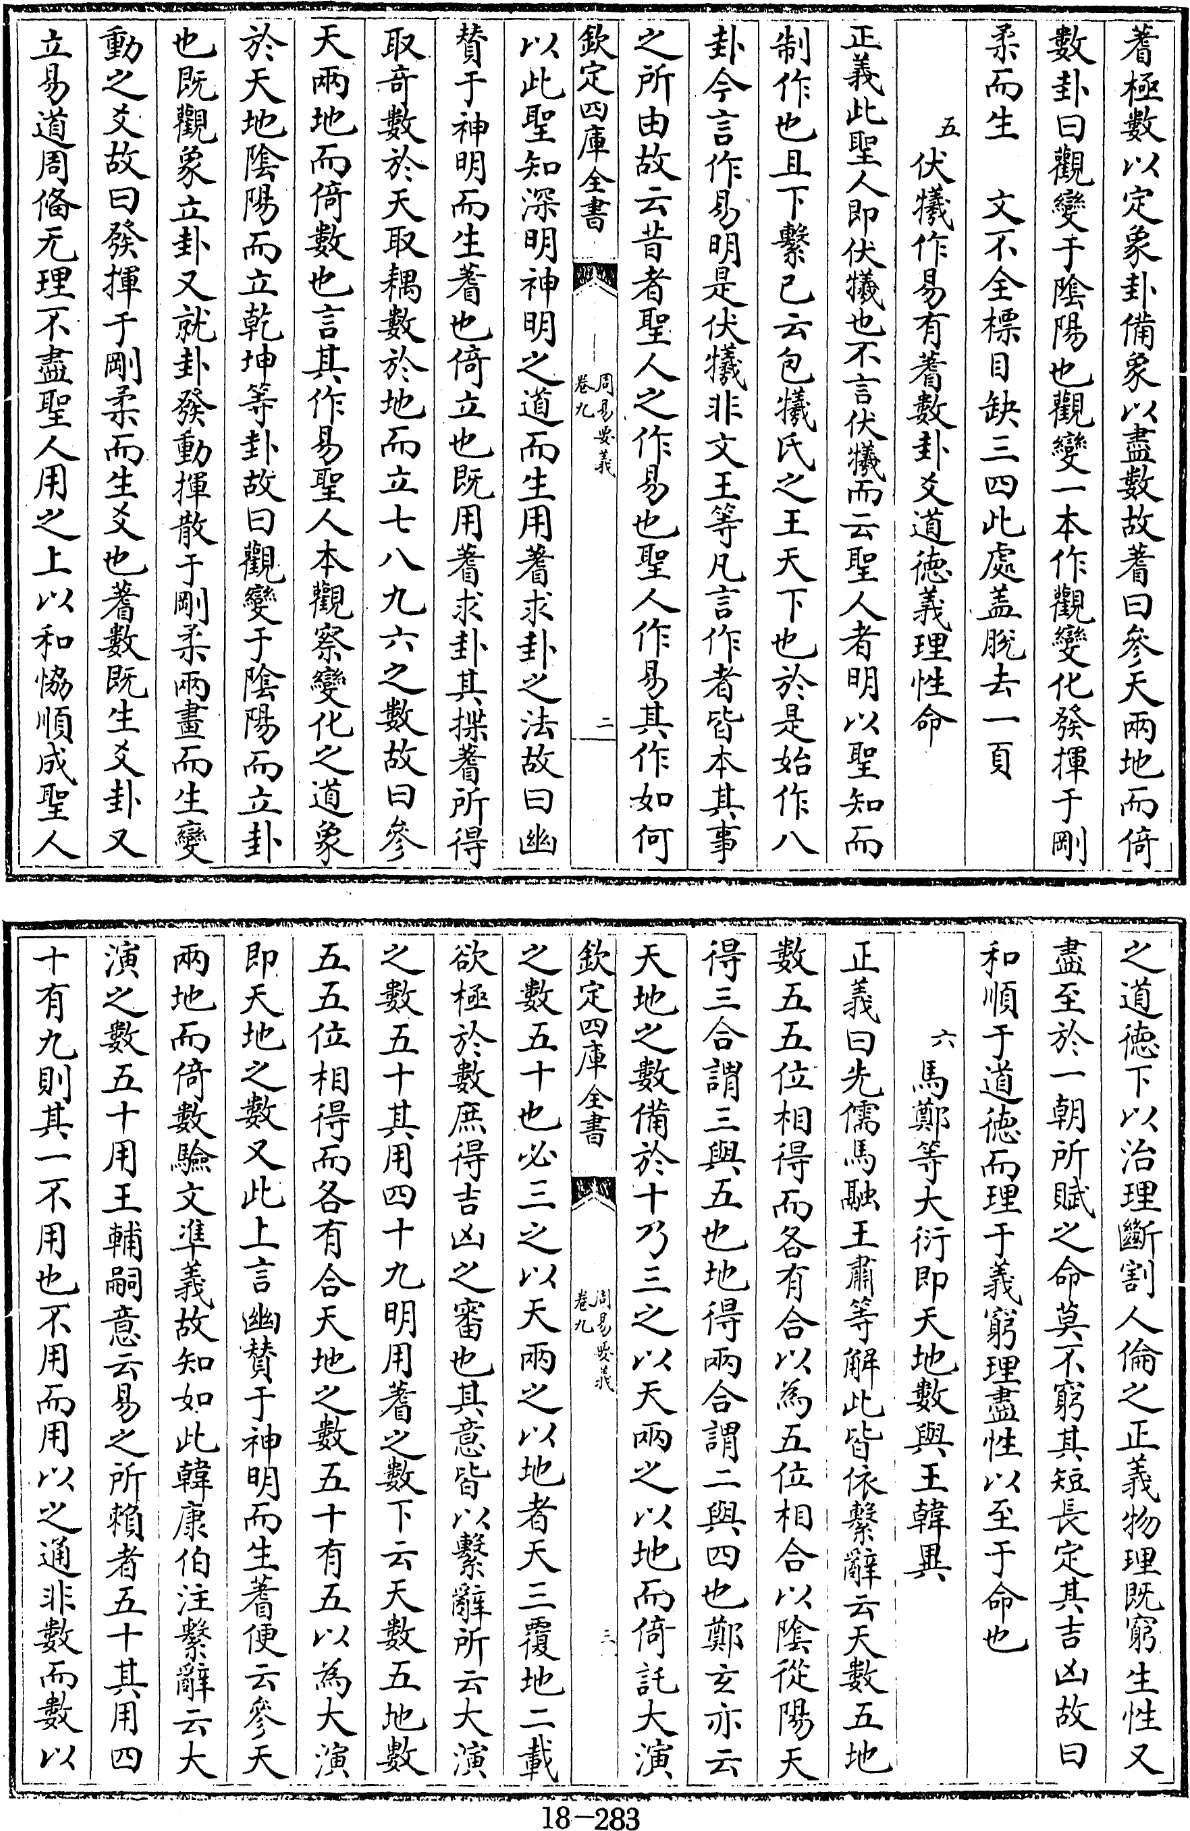 蓍極數以定象卦備象以盡數故蓍曰參天兩地而倚
數卦曰觀變于陰陽也觀變一本作觀變化發揮于剛
柔而生　文不全標目缺三四此處葢脫去一頁
五伏犧作易有蓍數卦爻道德義理性命
正義此聖人即伏犧也不言伏犧而云聖人者明以聖知而
制作也且下繫已云包犧氏之王天下也於是始作八
卦今言作易明是伏犧非文王等凡言作者皆本其事
之所由故云昔者聖人之作易也聖人作易其作如何
欽定四庫全書
周易要義
卷九
二
以此聖知深明神明之道而生用蓍求卦之法故曰幽
贊于神明而生蓍也倚立也既用蓍求卦其揲蓍所得
取奇數於天取耦數於地而立七八九六之數故曰參
天兩地而倚數也言其作易聖人本觀察變化之道象
於天地陰陽而立乾坤等卦故曰觀變于陰陽而立卦
也既觀象立卦又就卦發動揮散于剛柔兩畫而生變
動之爻故曰發揮于剛柔而生爻也蓍數既生爻卦又
立易道周偹无理不盡聖人用之上以和恊順成聖人
之道德下以治理斷割人倫之正義物理既窮生性又
盡至於一朝所賦之命莫不窮其短長定其吉凶故曰
和順于道德而理于義窮理盡性以至于命也
六馬鄭等大衍即天地數與王韓異
正義曰先儒馬融王肅等解此皆依繫辭云天數五地
數五五位相得而各有合以為五位相合以陰從陽天
得三合謂三與五也地得兩合謂二與四也鄭玄亦云
天地之數備於十乃三之以天兩之以地而倚託大演
欽定四庫全書
周易要義
卷九
三
之數五十也必三之以天兩之以地者天三覆地二載
欲極於數庶得吉凶之審也其意皆以繫辭所云大演
之數五十其用四十九明用蓍之數下云天數五地數
五五位相得而各有合天地之數五十有五以為大演
即天地之數又此上言幽贊于神明而生蓍便云參天
兩地而倚數驗文準義故知如此韓康伯注繫辭云大
演之數五十用王輔嗣意云易之所賴者五十其用四
十有九則其一不用也不用而用以之通非數而數以
18-283